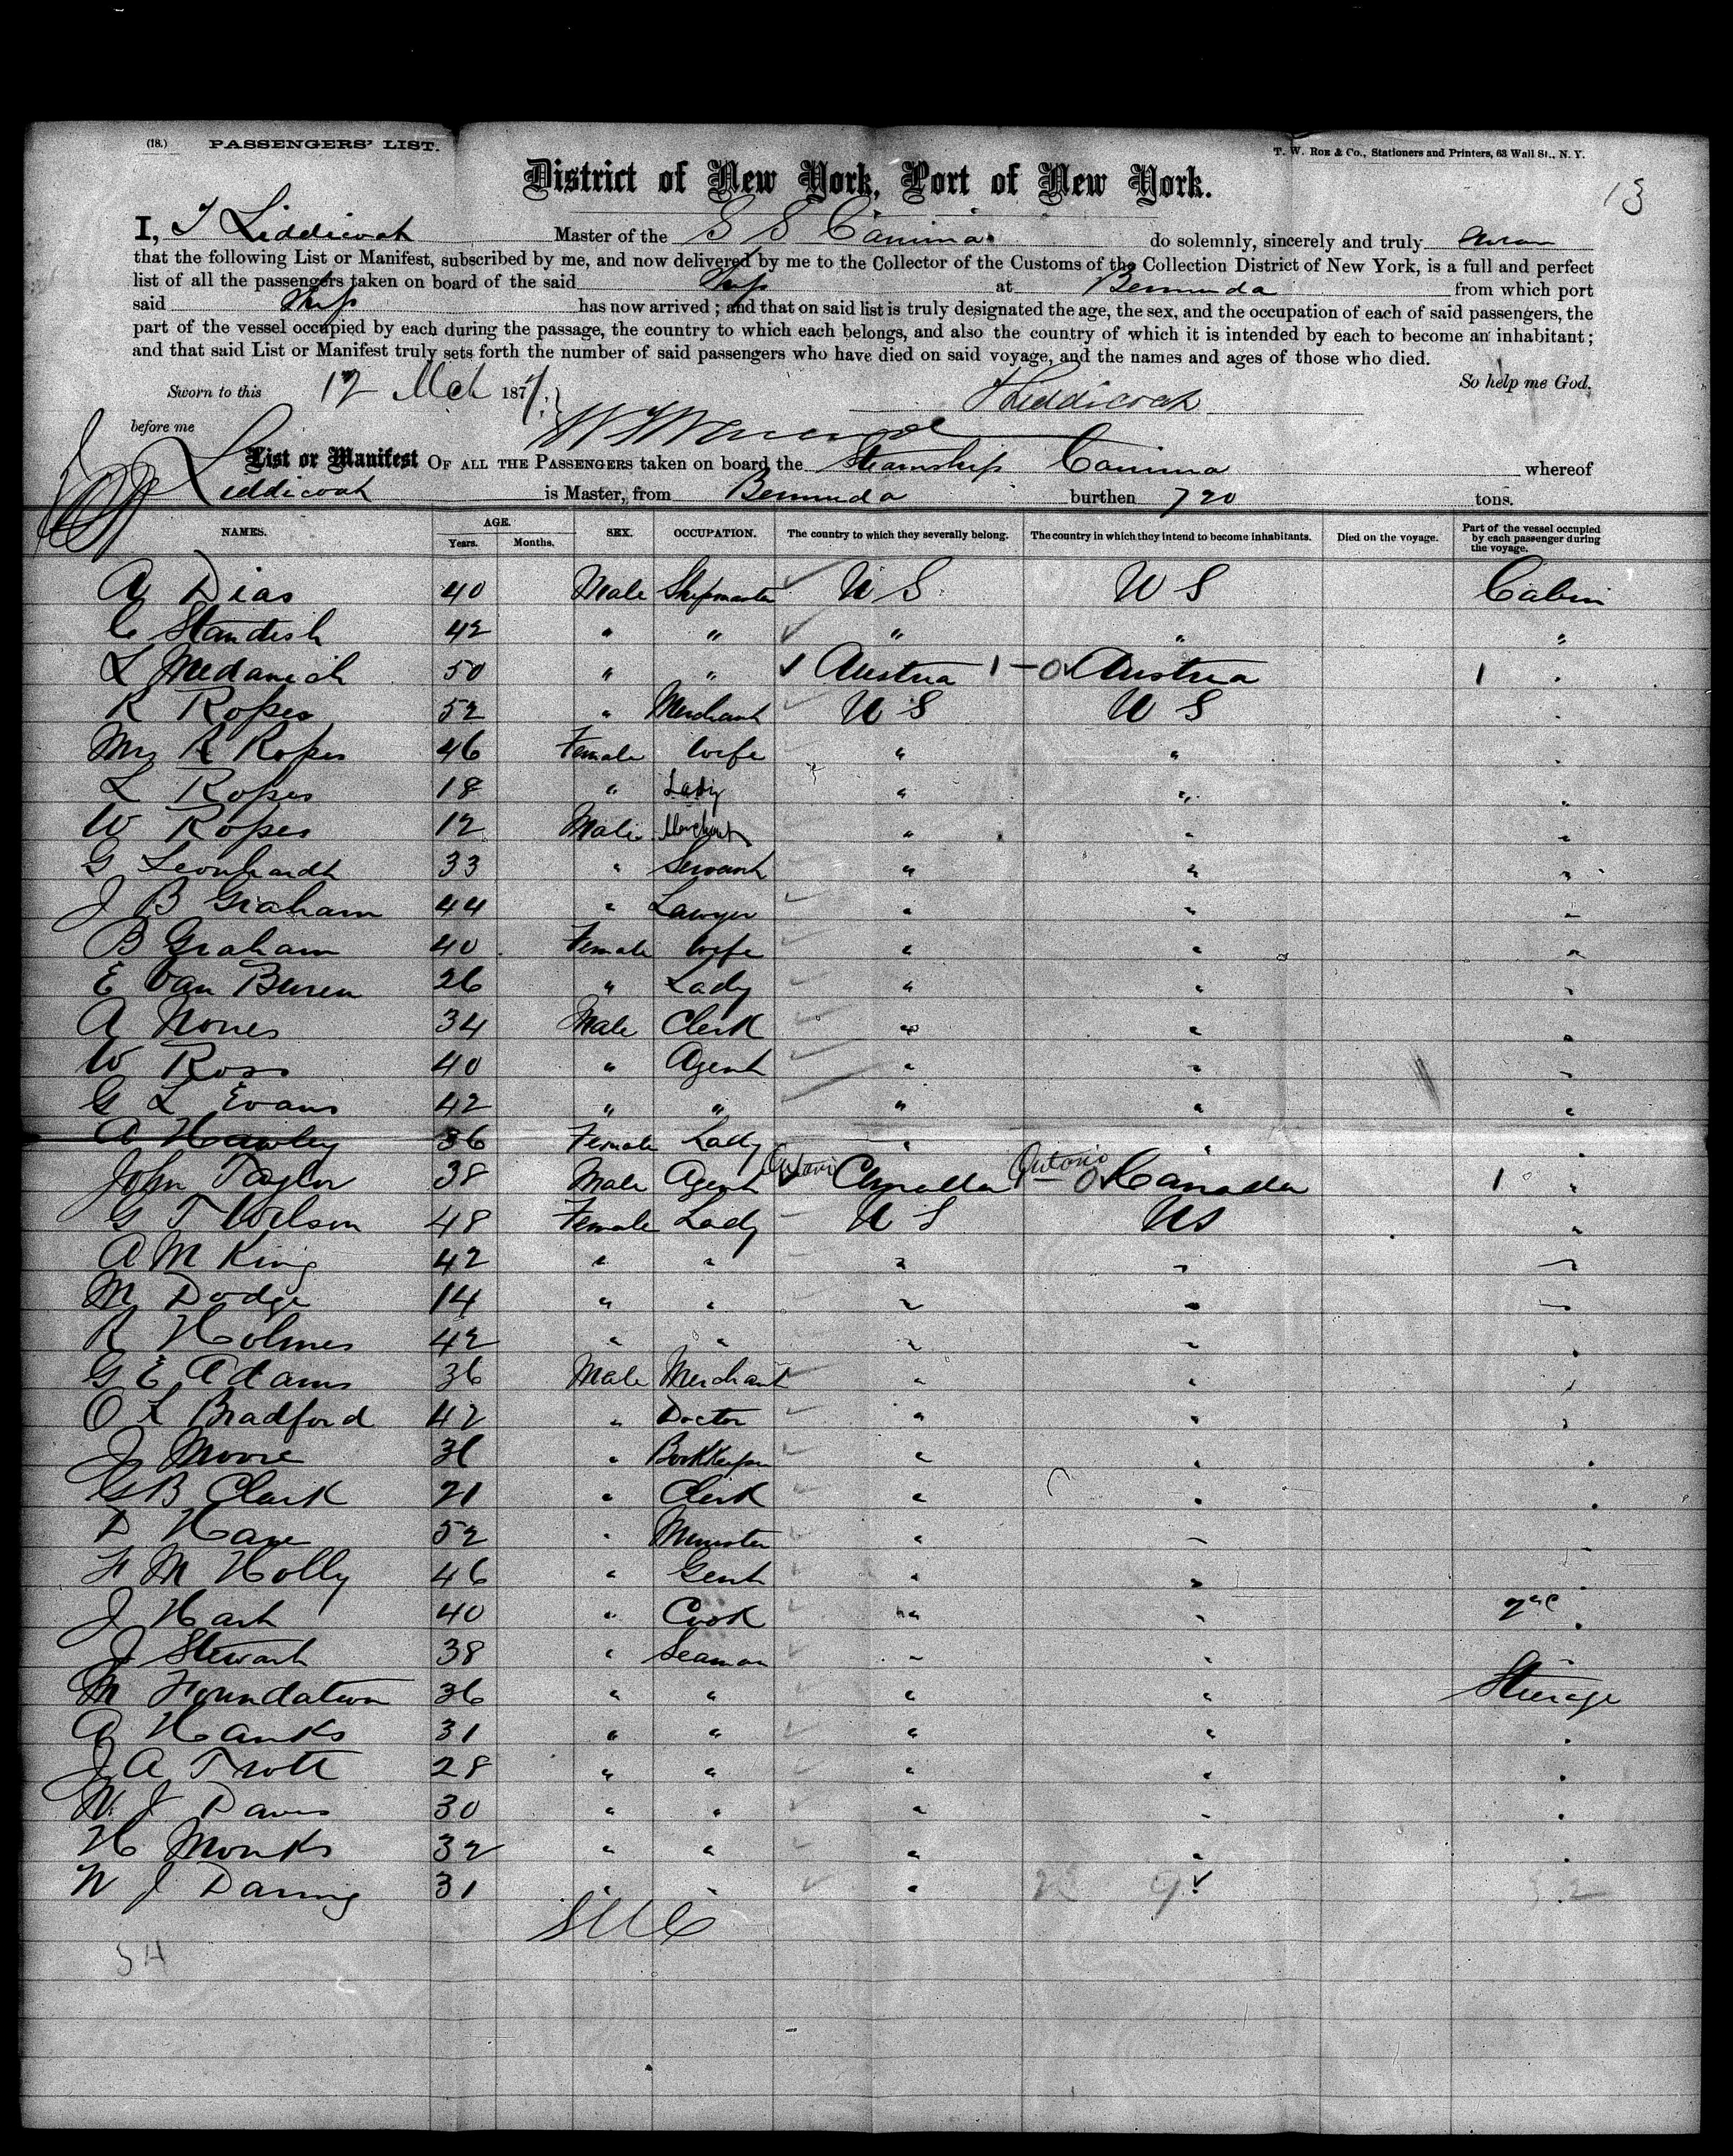 (18.) PASSENGERS' LIST.
T. W. Roe & Co., Stationers and Printers, 63 Wall St., N. Y.
13
District of New York, Port of New York.
I, T Liddicoat Master of the S S Canima do solemnly, sincerely and truly swear
that the following List or Manifest, subscribed by me, and now delivered by me to the Collector of the Customs of the Collection District of New York, is a full and perfect
list of all the passengers taken on board of the said Ship at Bermuda from which port
said Ship has now arrived ; and that on said list is truly designated the age, the sex, and the occupation of each of said passengers, the
part of the vessel occupied by each during the passage, the country to which each belongs, and also the country of which it is intended by each to become an inhabitant ;
and that said List or Manifest truly sets forth the number of said passengers who have died on said voyage, and the names and ages of those who died.
So help me God.
Sworn to this 12 Mch 187
T Liddicoat
before me
List or Manifest OF ALL THE PASSENGERS taken on board the Steamship Canima whereof
Liddicoat is Master, from Bermuda burthen 720 tons.
NAMES. AGE. Years. Months. SEX. OCCUPATION. The country to which they severally belong. The country in which they intend to become inhabitants. Died on the voyage. Part of the vessel occupied by each passenger during the voyage.
A Dias 40 Male Shipmaster U S U S Cabin
C Standish 42 " " " " "
L Medanich 50 " " Austria 1 - 0 Austria 1 "
R Ropes 52 " Merchant U S U S "
Mrs R Ropes 46 Female Wife " " "
L Ropes 18 " Lady " " "
W Ropes 12 Male Merchant " " "
G Leonhardt 33 " Servant " " "
J B Graham 44 " Lawyer " " "
B Graham 40 Female Wife " " "
E Van Buren 26 " Lady " " "
A Nones 34 Male Clerk " " "
W Ross 40 " Agent " " "
G L Evans 42 " " " " "
A Hawley 36 Female Lady " " "
John Taylor 38 Male Agent Ontario Canada 1 - 0 Ontario Canada 1 "
G T Wilson 48 Female Lady U S US "
A M King 42 " " " " "
M Dodge 14 " " " " "
R Holmes 42 " " " " "
G E Adams 36 Male Merchant " " "
O L Bradford 42 " Doctor " " "
J Moore 31 " Bookkeeper " " "
G B Clark 21 " Clerk " " "
D Hare 52 " Minister " " "
F M Holly 46 " Gent " " "
J Hart 40 " Cook " " "
J Stewart 38 " Seaman " " "
M Foundation 36 " " " " Steerage
A Hanks 31 " " " " "
J A Trott 28 " " " " "
W J Davis 30 " " " " "
H Monks 32 " " " " "
W J Daring 31 " " " " "
34